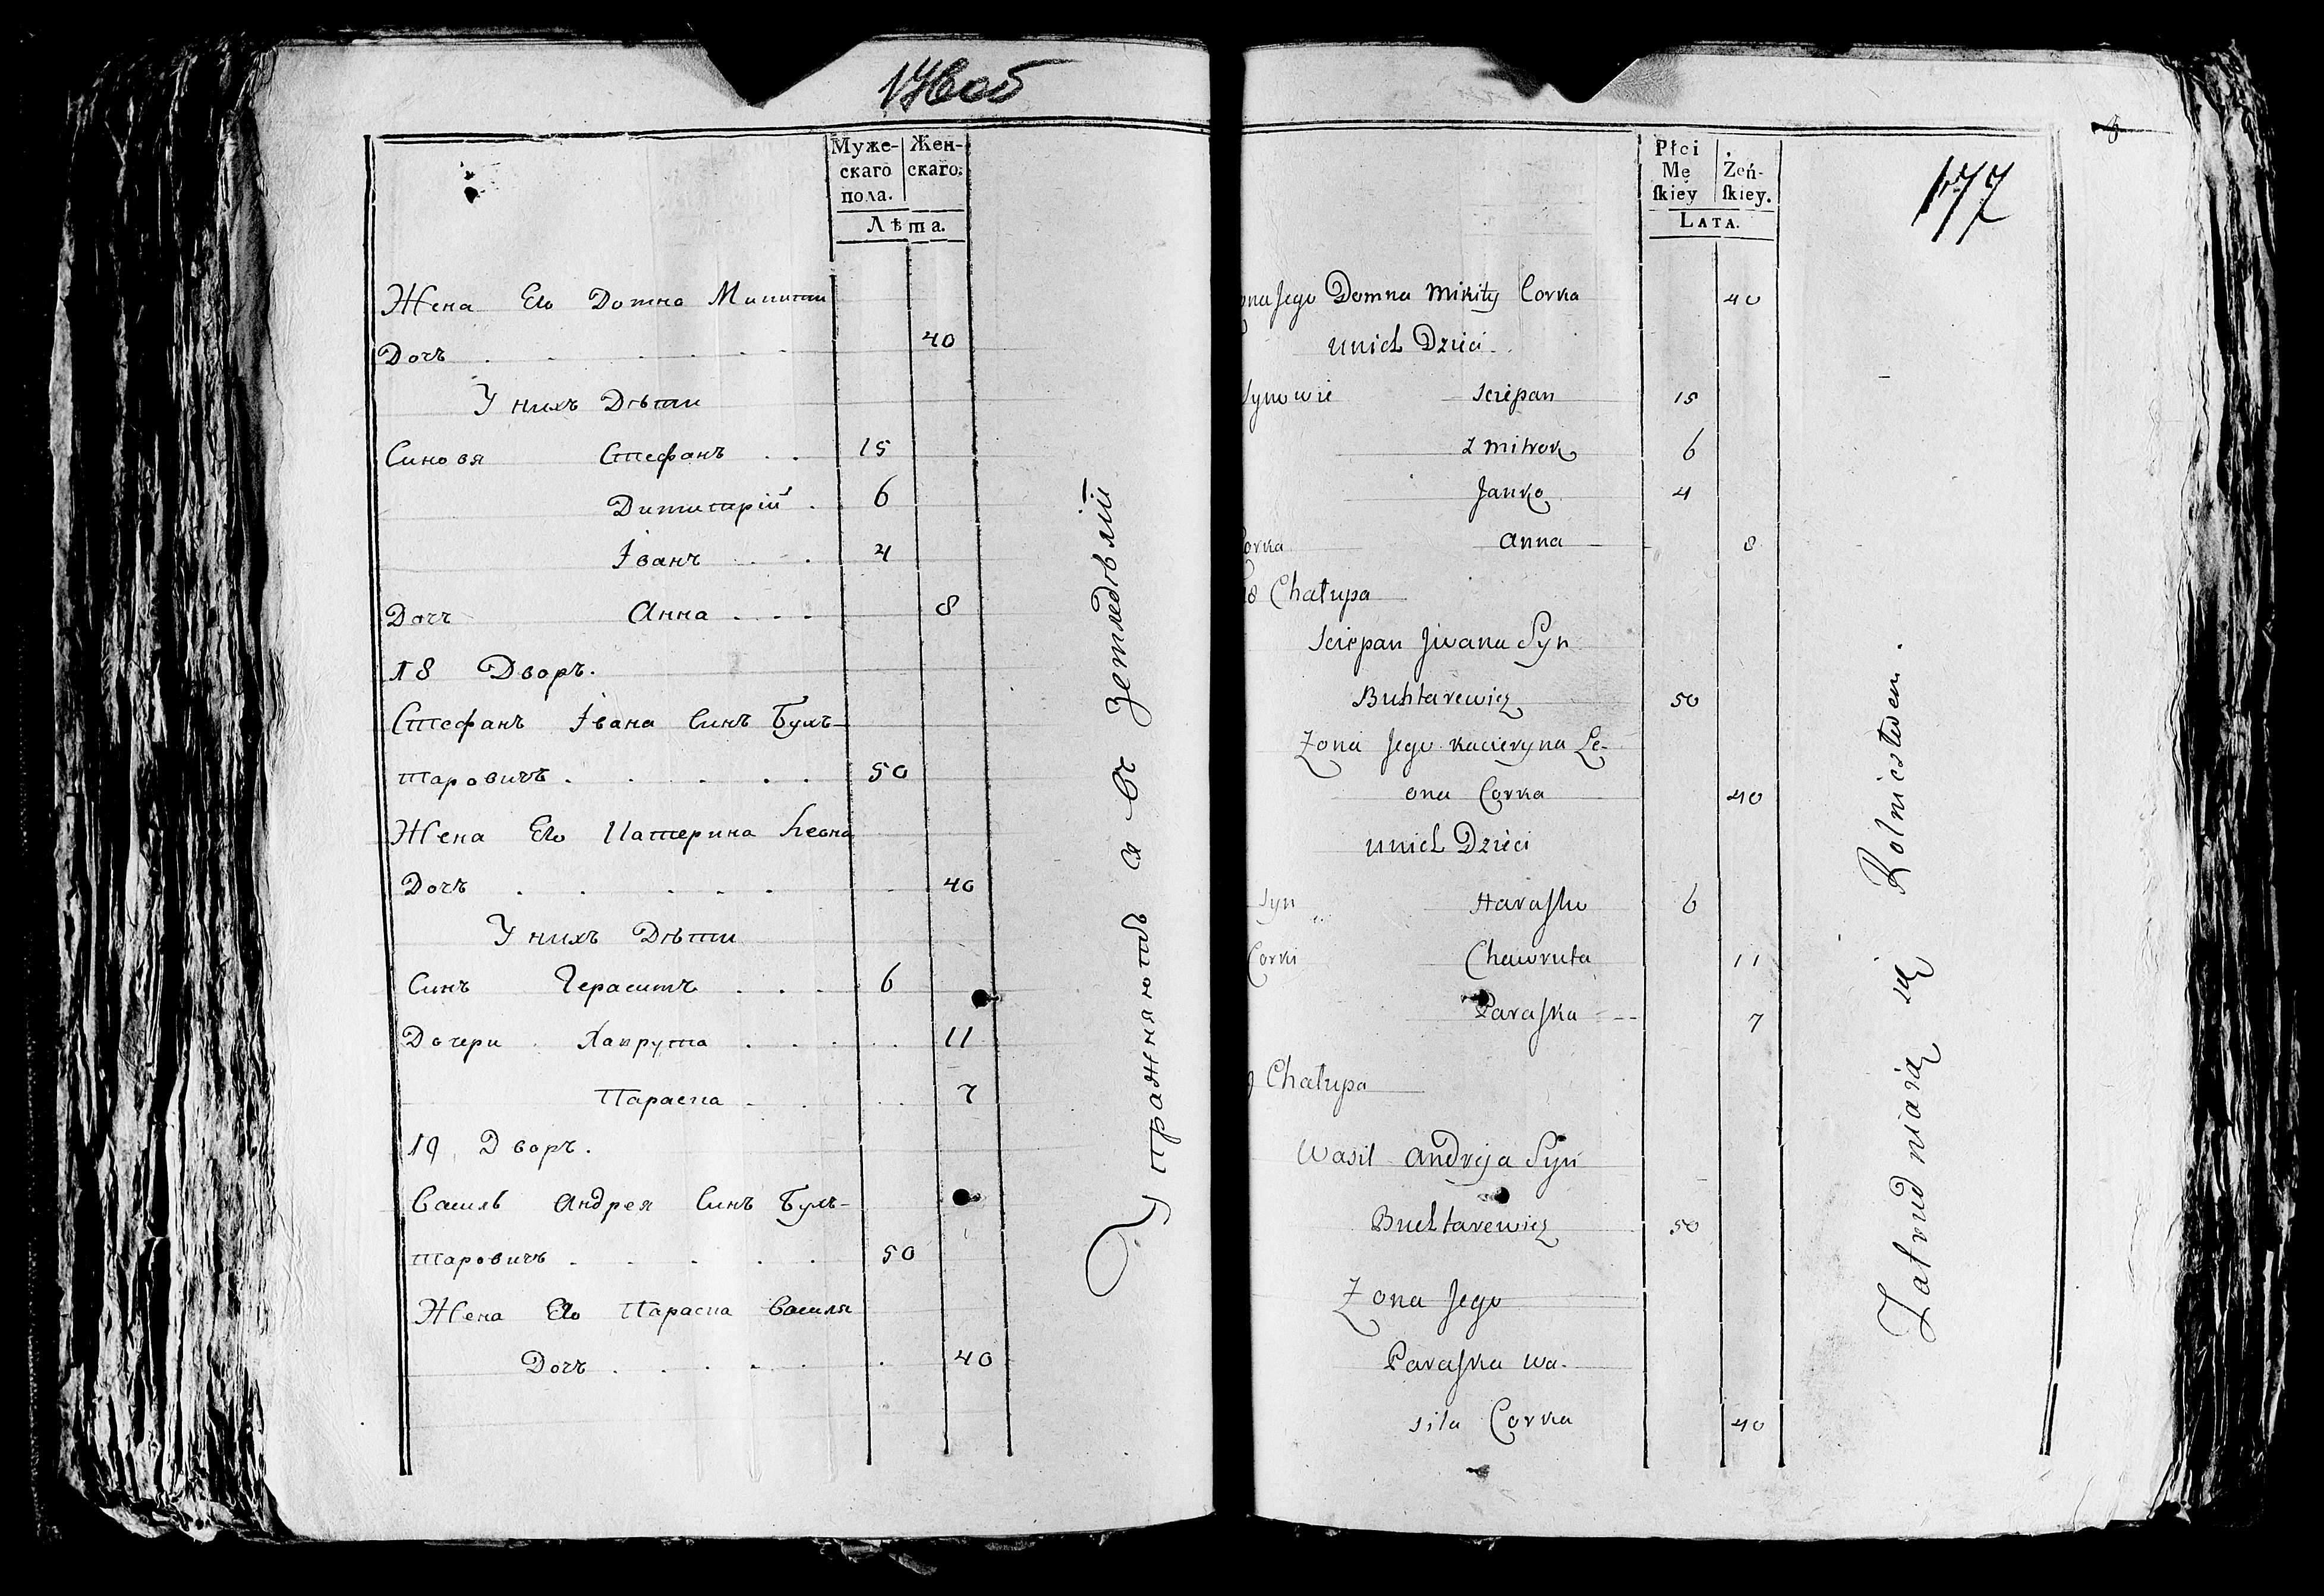 176об
Муже-
скаго
пола.
Жен-
скаго.
Лѣта.
Жена Его Домна Микити
Дочь . . . . . . 40
У нихъ Дѣти
Синовя Стефанъ . . 15
Димитрій . 6
Іванъ . . 4
Дочь Анна . . . 8
18 Дворъ.
Стефанъ Івана Синъ Бухъ-
таровичъ . . . . . 50
Жена Его Катерина Леона
Дочь . . . . . . 40
У нихъ Дѣти
Синъ Герасимъ . . . 6
Дочери Хавруша . . . . 11
Параска . . . 7
19 Дворъ.
Василь Андрея Синъ Бухъ-
таровичъ . . . . . 50
Жена Его Параска Василя
Дочь . . . . . . 40
Упражняютъ ся въ Земледѣліи
177
Płci
Mę
ſkiey
Żeń-
ſkiey.
LATA.
ona Jego Domna Mikity Corka 40
unich Dzieci
Synowie Sciepan 15
Zmitrok 6
Janko 4
Corka Anna 8
18 Chałupa
Sciepan Jwana Syn
Buhtarewicz 50
Zona Jego Kacieryna Le-
ona Corka 40
unich Dzieci
Syn Haraſko 6
Corki Chawruta 11
Paraſka 7
9 Chałupa
Wasil Andrya Syn
Buchtarewicz 50
Zona Jego
Paraſka Wa-
sila Corka 40
Zatrudniaią się Rolnictwem.